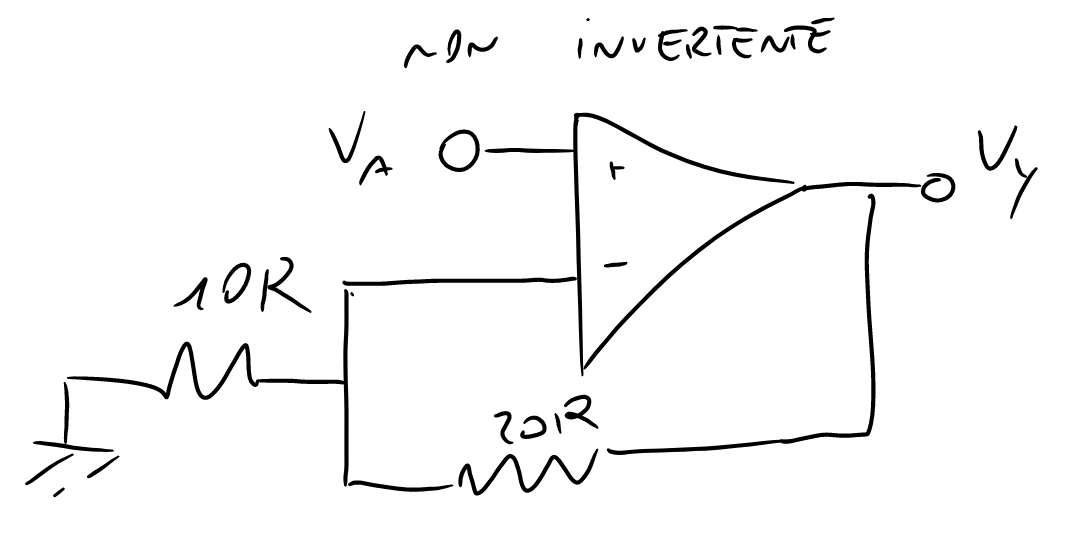 NON INVERTENTE
VA
+
VY
-
10R
20R